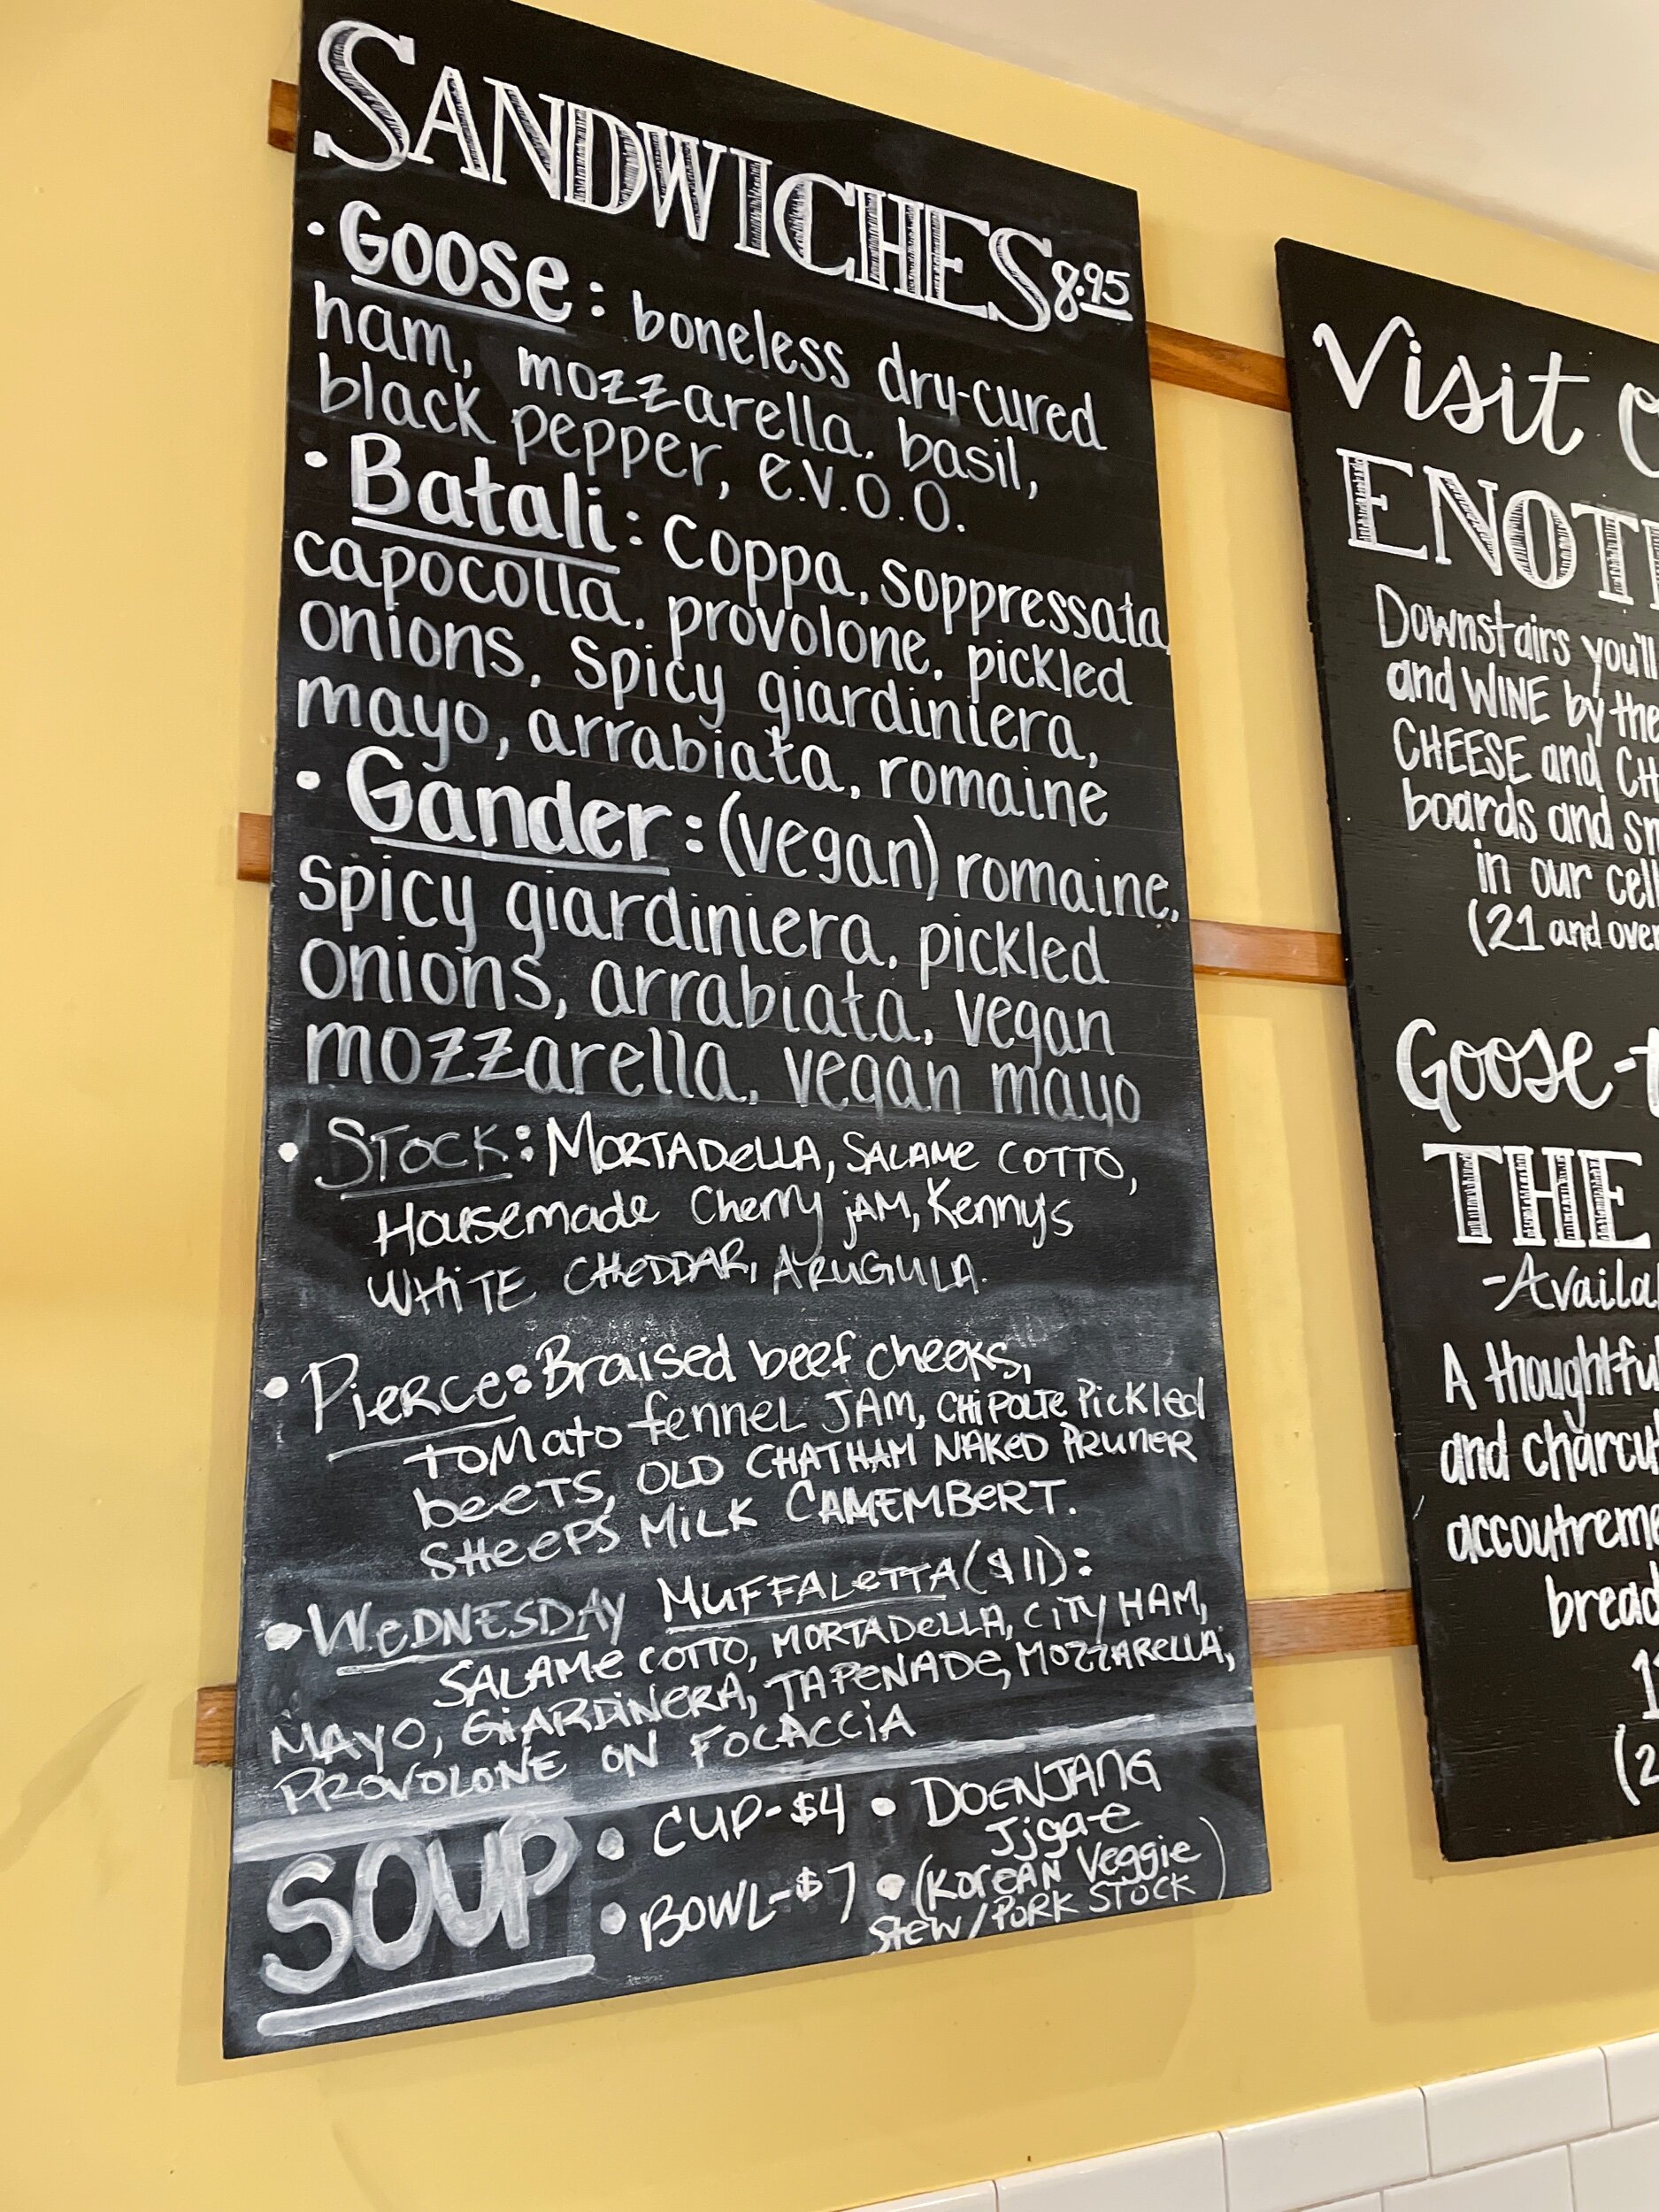 SANDWICHES 8.95
• Goose: boneless dry-cured
ham, mozzarella, basil,
black pepper, e.v.o.o.
• Batali: coppa, soppressata,
capocolla, provolone, pickled
onions, spicy giardiniera,
mayo, arrabiata, romaine
• Gander: (vegan) romaine,
spicy giardiniera, pickled
onions, arrabiata, vegan
mozzarella, vegan mayo
• STOCK: MORTADELLA, SALAME COTTO,
Housemade Cherry JAM, Kennys
WHITE CHEDDAR, ARUGULA.
• PIERCE: Braised beef cheeks,
TOMATO fennel JAM, CHIPOLTE Pickled
beets, OLD CHATHAM NAKED PRUNER
SHEEPS MILK CAMEMBERT.
• WEDNESDAY MUFFALETTA ($11):
SALAME COTTO, MORTADELLA, CITY HAM,
MAYO, GIARDINERA, TAPENADE, MOZZARELLA,
PROVOLONE ON FOCACCIA
SOUP • CUP-$4 • DOENJANG
Jjgae
• BOWL-$7 • (KOREAN Veggie
Stew/PORK STOCK)
Visit
ENOT
Downstairs you'll
and WINE by the
CHEESE and CH
boards and sn
in our cell
(21 and over
Goose-t
THE
-Availa
A thoughtfu
and charcut
accoutreme
bread
11
(2